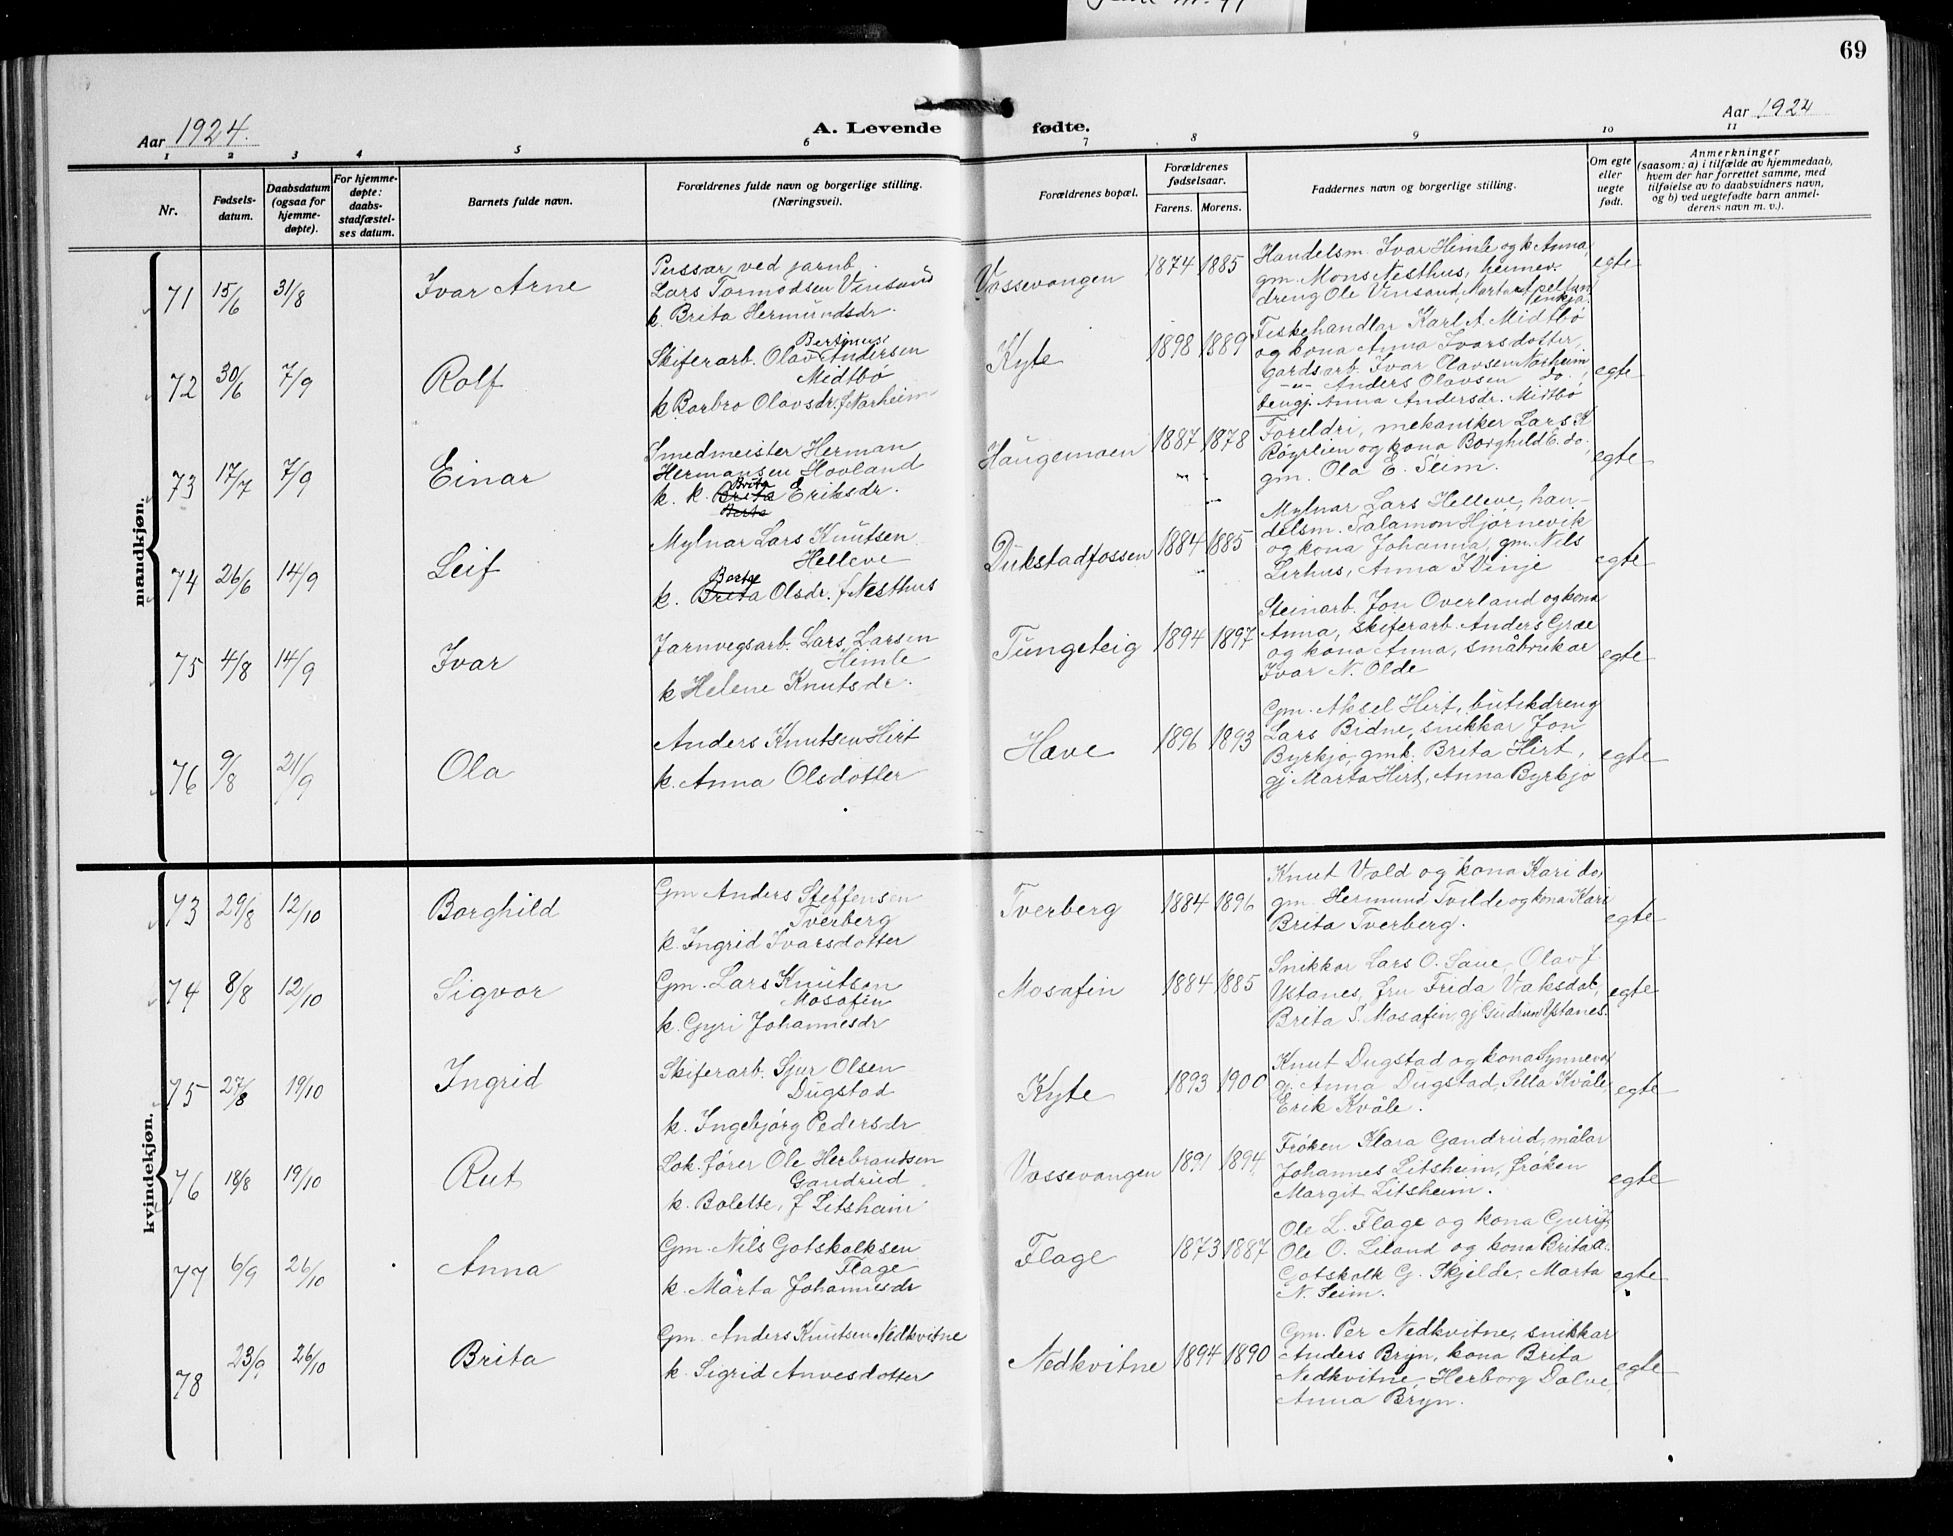 69
Aar 1924.
A. Levende fødte.
Aar 1924
1 2 3 4 5 6 7 8 9 10 11
Nr.
Fødsels-
datum.
Daabsdatum
(ogsaa for
hjemme-
døpte).
For hjemme-
døpte:
daabs-
stadfæstel-
ses datum.
Barnets fulde navn.
Forældrenes fulde navn og borgerlige stilling.
(Næringsvei).
Forældrenes bopæl.
Forældrenes
fødselsaar.
Farens. Morens.
Faddernes navn og borgerlige stilling.
Om egte
eller
uegte
født.
Anmerkninger
(saasom: a) i tilfælde av hjemmedaab,
hvem der har forrettet samme, med
tilføielse av to daabsvidners navn,
og b) ved uegtefødte barn anmel-
derens navn m. v.).
mandkjøn.
71 15/6 31/8 Ivar Arne
Pussar ved jarnb.
Lars Tormodsen Vinsand
k. Brita Hermundsdr.
Vossevangen 1874 1885
Handelsm. Ivar Himle og k. Anna,
gm. Mons Nesthus, heimev.
dreng Ole Vinsand, Marta
enkja.
egte
72 30/6 7/9 Rolf
Bertinus
Skiferarb. Olav Andersen
Midtbø
k. Barbro Olavsdr. f Narheim
Kyte 1898 1889
Fiskehandlar Karl A. Midtbø
og kona Anna Ivarsdotter,
Gardsarb. Ivar Olavsen Narheim
-"- Anders Olavsen do.,
tengj. Anna Andersdr. Midtbø
egte
73 17/7 7/9 Einar
Smedmeister Herman
Hermansen Hovland
Brita
k. k. Brita Eriksdr.
Berta
Haugamoen 1887 1878
Foreldri, mekaniker Lars K
Røyrlien og kona Borghild E. do,
gm. Ola E. Seim.
egte
74 26/6 14/9 Leif
Mylnar Lars Knutsen
Helleve
Bertge
k. Brita Olsdr. f Nesthus
Dukstadfossen 1884 1885
Mylnar Lars Helleve, han-
delsm. Salamon Hjørnevik
og kona Johanna, gm. Nils
Lirhus, Anna I Vinje
egte
75 4/8 14/9 Ivar
Jarnvegsarb. Lars Larsen
Himle
k Helene Knutsdr.
Tungeteig 1894 1897
Steinarb. Jon Overland og kona
Anna, skiferarb. Anders Græe
og kona Anna, småbrukar
Ivar N. Olde
egte
76 9/8 21/9 Ola
Anders Knutsen Hirt
k. Anna Olsdotter
Hæve 1896 1893
Gm. Aksel Hirt, butikdreng
Lars Bidne, snikkar Jon
Byrkjo, gmk. Brita Hirt,
gj Marta Hirt, Anna Byrkjo
egte
kvindekjøn.
73 29/8 12/10 Borghild
Gm Anders Steffensen
Tverberg
k. Ingrid Ivarsdotter
Tverberg 1884 1896
Knut Vold og kona Kari do,
gm. Hermund Tvilde og kona Kari
Brita Tverberg.
egte
74 8/8 12/10 Sigvor
Gm. Lars Knutsen
Mosafin
k. Gyri Johannesdr
Mosafin 1884 1885
Snikkar Lars O. Saue, Olav J
Ystanes, fru Frida Vaksdal,
Brita S. Mosafin, gj Gudrun Ystanes.
egte
75 27/8 19/10 Ingrid
Skiferarb. Sjur Olsen
Dugstad
k. Ingebjørg Pedersdr
Kyte 1893 1900
Knut Dugstad og kona Synneva
g. Anna Dugstad, Sella Kvåle,
Erik Kvåle.
egte
76 18/8 19/10 Rut
Lok. fører Ole Herbrandsen
Gandrud
k. Bolette, f Litsheim
Vossevangen 1891 1894
Frøken Klara Gandrud, målar
Johannes Litsheim, frøken
Margit Litsheim.
egte
77 6/9 26/10 Anna
Gm. Nils Gotskalksen
Flage
k. Marta Johannesdr
Flage 1873 1887
Ole L. Flage og kona Guri J,
Ole O. Liland og kona Brita A.
Gotskalk G. Skjelde, Marta
N. Seim.
egte
78 23/9 26/10 Brita
Gm. Anders Knutsen Nedkvitne
k. Sigrid Anvesdotter
Nedkvitne 1894 1890
Gm. Per Nedkvitne, snikkar
Anders Bryn, kona Brita
Nedkvitne, Herborg Dalve,
Anna Bryn.
egte